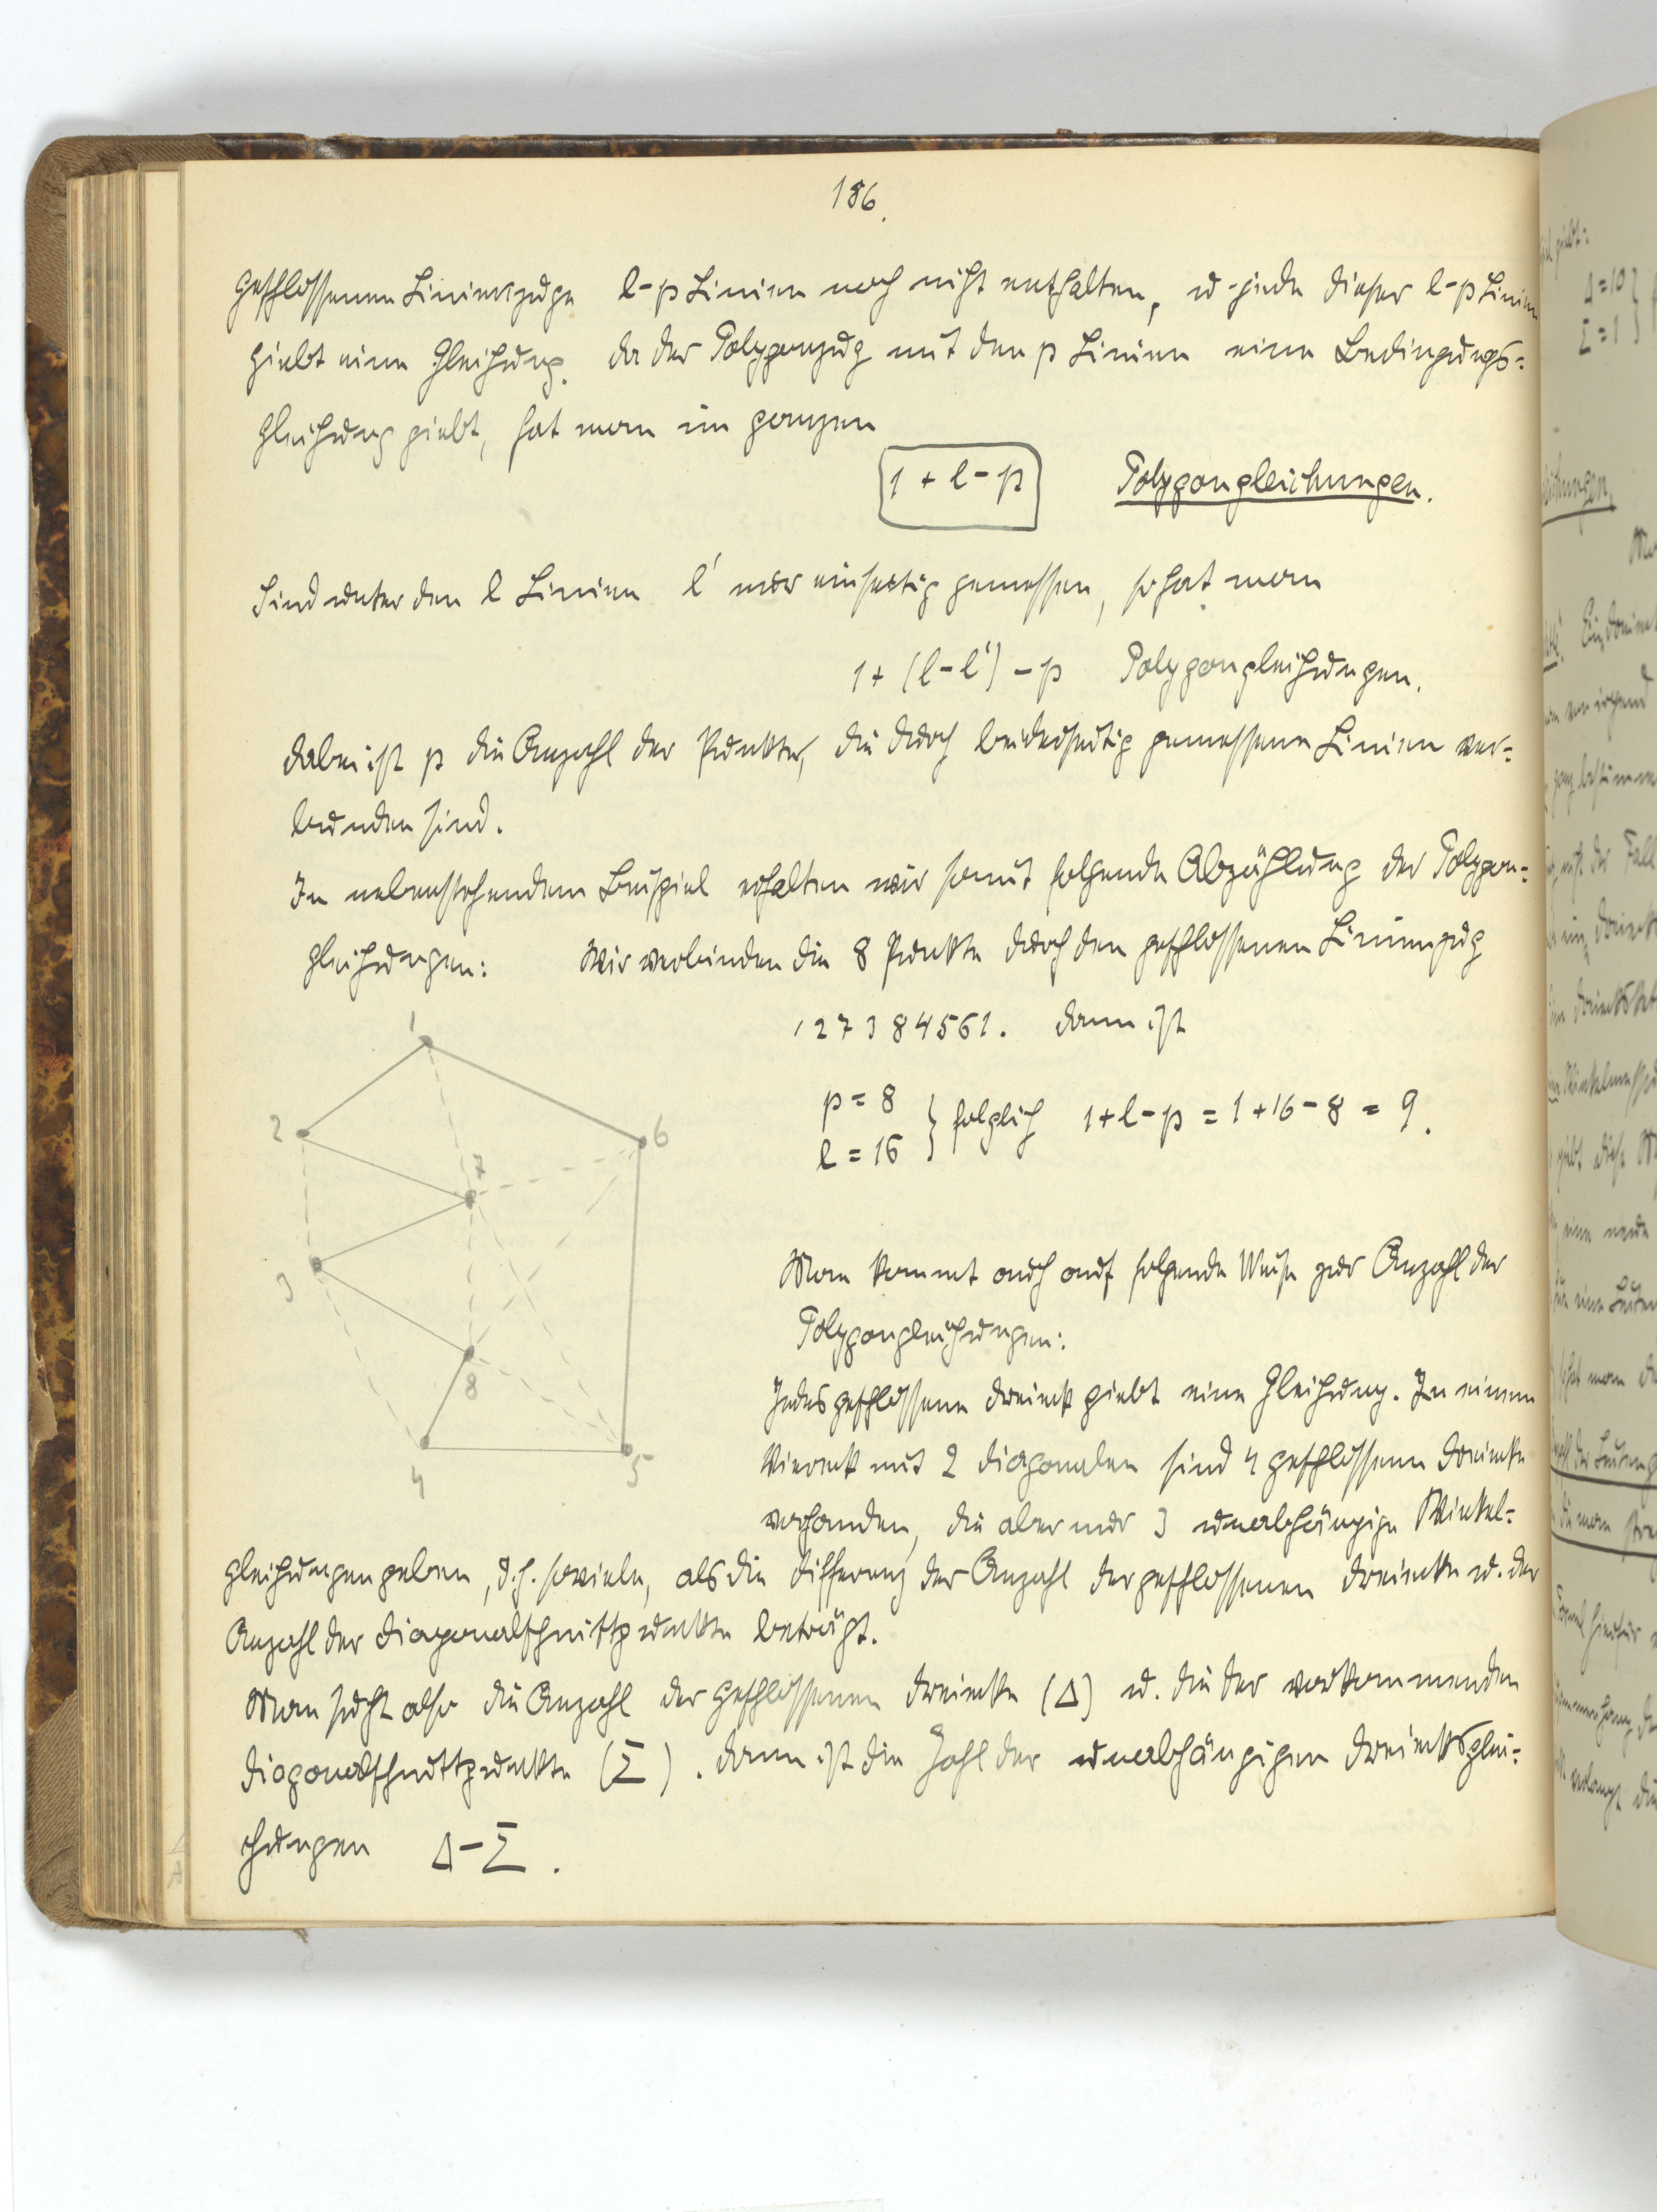 186.
geschlossenen Linienzuge l-p Linien noch nicht enthalten, u. jede dieser l-p Linien
giebt eine Gleichung. Da der Polygonzug mit den p Linien eine Bedingungs=
gleichung giebt, hat man im ganzen
1 + l - p Polygongleichungen.
Sind unter den l Linien l' nur einseitig gemessen, so hat man
1 + (l - l') - p Polygongleichungen.
Dabei ist p die Anzahl der Punkte, die durch beiderseitig gemessene Linien ver=
bunden sind.
In nebenstehendem Beispiel erhalten wir somit folgende Abzählung der Polygon=
gleichungen: Wir verbinden die 8 Punkte durch den geschlossenen Linienzug
127384561. Dann ist
p = 8
l = 16 } folglich 1+l-p = 1+16-8 = 9.
1
2
6
7
3
8
4
5
Man kommt auch auf folgende Weise zur Anzahl der
Polygongleichungen:
Jedes geschlossene Dreieck giebt eine Gleichung. In einem
Viereck mit 2 Diagonalen sind 4 geschlossene Dreiecke
vorhanden, die aber nur 3 unabhängige Winkel=
gleichungen geben, d.h. soviele, als die Differenz der Anzahl der geschlossenen Dreiecke u. der
Anzahl der Diagonalschnittpunkte beträgt.
Man sucht also die Anzahl der geschlossenen Dreiecke (Δ) u. die der vorkommenden
Diagonalschnittpunkte (Σ). Dann ist die Zahl der unabhängigen Dreiecksglei=
chungen Δ-Σ.
giebt:
Δ=10
Σ=1 }